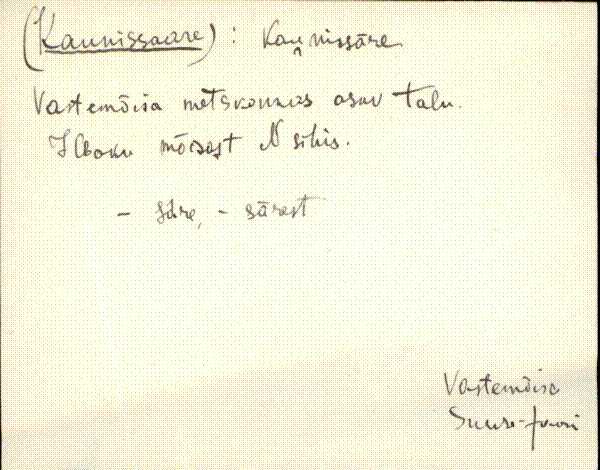 (Kaunissaare) : Kaunissāre
Vastemõisa metskonnas asuv talu.
mõisast N sihis.
- sāre, - sārest
Vastemõisa
Suure-Jaani